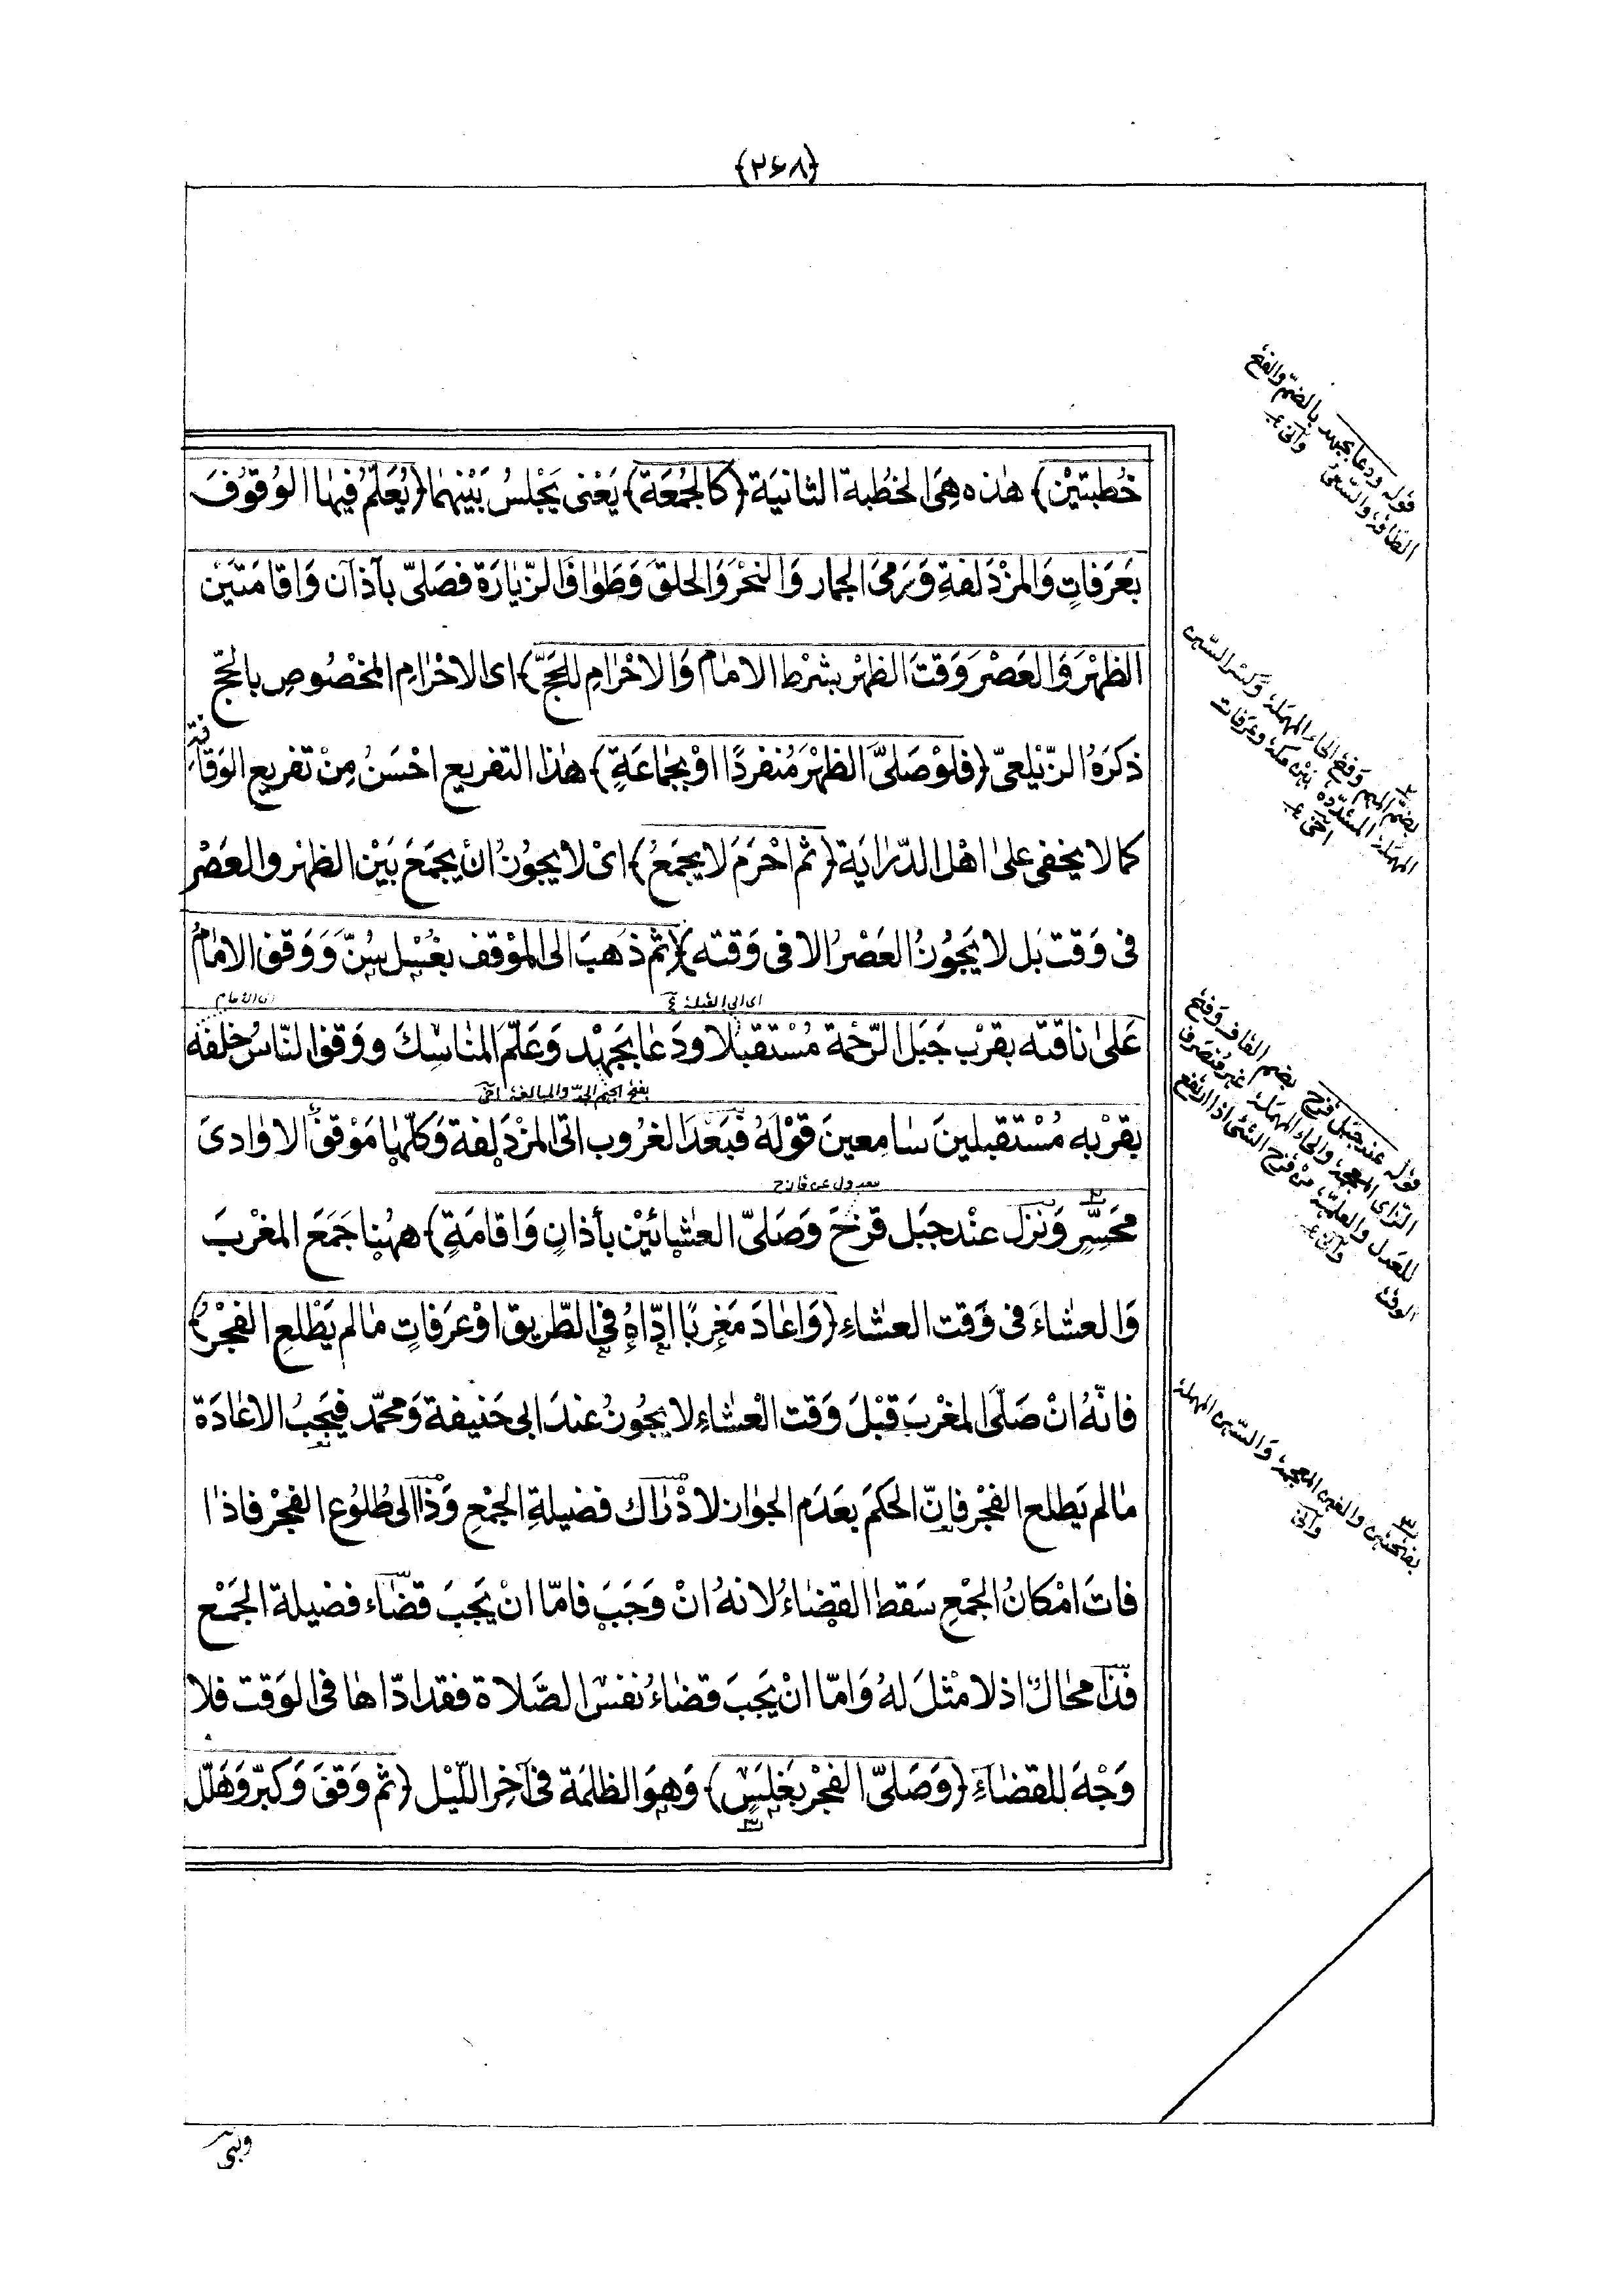 ﴿٢٦٨﴾
خُطبتَيْن﴾ هٰذه هِىَ الخطبة الثانيَة ﴿كالجُمعَة﴾ يَعْنى يَجْلسُ بَيْنهما ﴿يُعَلّمُ فيهٰا الوُقوُفَ
بعَرَفاتٍ وَالمزْدَلفةِ وَرمىَ الجمار وَالنحْرَ وَالحلقَ وَطَوٰافَ الزّيٰارَة فصَلىّ بآذآن وَاقامَتَيْن
الظهْرَ وَالعَصْرَ وَقتَ الظهْر بشَرْط الامٰام وَالاحْرٰامِ للحَجّ﴾ اى الاحْرٰامِ المخصُوصِ بالحجّ
ذكرَهُ الزّيْلعىّ ﴿فلوْ صَلىَّ الظهْرَ مُنفردًا اوْ بجمٰاعَةٍ﴾ هٰذا التفريع احْسَنُ مِنْ تفريع الوَقٰايَة
كما لا يخفى على اهْل الدّرٰايَة ﴿ثم احْرَمَ لا يجمَعُ﴾ اىْ لا يجُوُزُ انْ يجمَعَ بَيْن الظهر والعصْر
فى وَقت بَل لا يَجُوُزُ العَصْرُ الا فى وَقته ﴿ثم ذهَبَ الى الموْقف بغُسْل سُنّ وَوَقف الامٰامُ
اى الى القبلة
اى الامام
عَلىٰ ناقته بقرْب جَبَل الرّحْمة مُسْتقبلا وَدَعٰا بجَهْد وَعَلّمَ المنٰاسِكَ وَوَقف النّاسُ خلفهُ
بفتح الجيم الجدّ والمبالغة اخى
بقرْبه مُسْتقبلينَ سٰامعينَ قوْلهُ فبَعْدَ الغرُوب اتى المزْدَلفة وَكلّهٰا مَوْقفٌ الا وٰادىَ
معدول عن قازح
محَسِّرٍ وَنزَل عنْد جبَل قزحَ وَصَلىّ العشٰائَيْن بأذانٍ وَاقامَةٍ﴾ ههُنا جَمَعَ المغْربَ
وَالعشٰاءَ فى وَقت العشٰاءِ ﴿وَاعٰادَ مَغربًا ادّاهُ فى الطّريق اوْ عرَفاتٍ مٰا لم يَطْلعِ الفجْرُ﴾
فانّهُ انْ صَلّى المغْربَ قبْلَ وَقت العشٰاءِ لا يجُوُزُ عندَ ابى حَنيفة وَمحمّد فيَجبُ الاعٰادَة
مٰا لم يَطلع الفجْر فانّ الحكمَ بعَدَم الجوٰاز لادْرٰاك فضيلةِ الجمْعِ وَذا الى طُلوُع الفجْر فاذٰا
فاتَ امْكانُ الجمْعِ سَقط القضٰاءُ لانهُ انْ وَجَبَ فامّا انْ يَجبَ قضٰاء فضيلة الجَمْع
فذا محٰالٌ اذ لا مثْلَ لهُ وَامّا انْ يَجبَ قضٰاءُ نفسْ الصَّلاة فقد ادّاهٰا فى الوَقت فلا
وَجْهَ للقضٰاءِ ﴿وَصَلىّ الفجْر بغَلسٍ﴾ وَهوَ الظلمَة فى آخِر اللّيْل ﴿ثم وَقفَ وَكبرّ وَهَلّل
قوله ودعا بجهد بالضمّ والفتح
الطاقة والسّعى وانى
بضمّ الميم وفتح الحاء المهملة وكسر السّين
المهملة المشدّدة بين مكة وعرفات
اخى
قوله عند جبل قزح بضم القاف وفتح
الزاى المعجمة والحاء المهملة غير منصرف
للعدل والعلميّة من قزح الشئ اذا ارتفع
وانى
بفتحتين والغين المعجمة والسّين المهملة
وانى